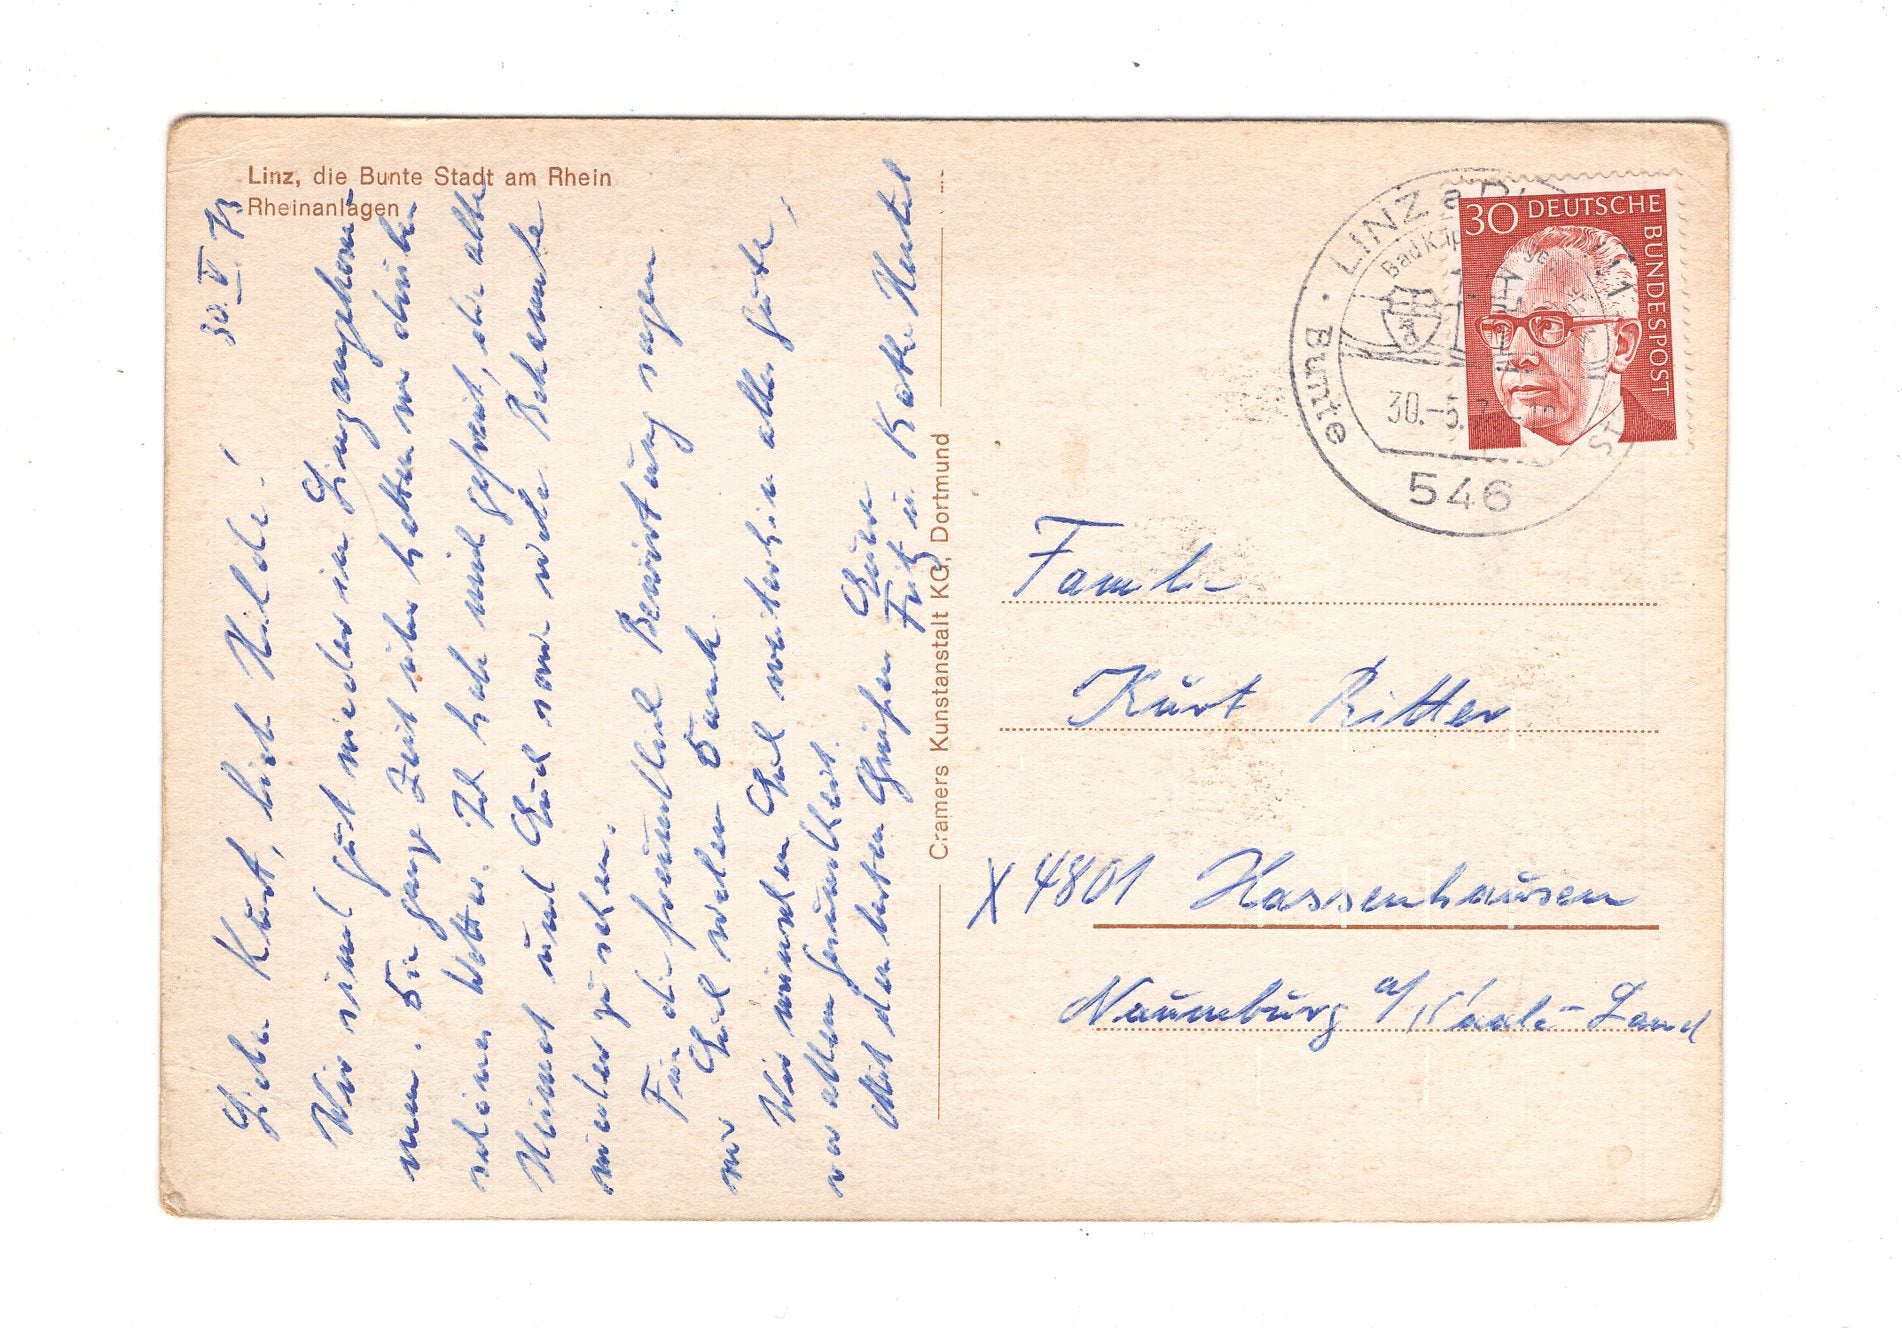 Linz, die Bunte Stadt am Rhein
Rheinanlagen
30. V. 73
Liebe Kurt, liebe Hilde!
Wir sind gut wieder in Linz angekom-
men. Die ganze Zeit über hatten wir
schönes Wetter. Ich habe mich gefreut, die alte
Heimat und Euch sowie viele Bekannte
wieder zu sehen.
Für die freundliche Bewirtung sagen
wir Euch vielen Dank.
Wir wünschen Euch weiterhin alles Gute,
vor allem Gesundheit.
Mit den besten Grüßen Eure
Fritz u. Käthe
Cramers Kunstanstalt KG, Dortmund
LINZ a.
Bunte
30.-5.
546
30 DEUTSCHE
BUNDESPOST
Familie
Kurt Ritter
X 4801 Hassenhausen
Naumburg a/Saale-Land